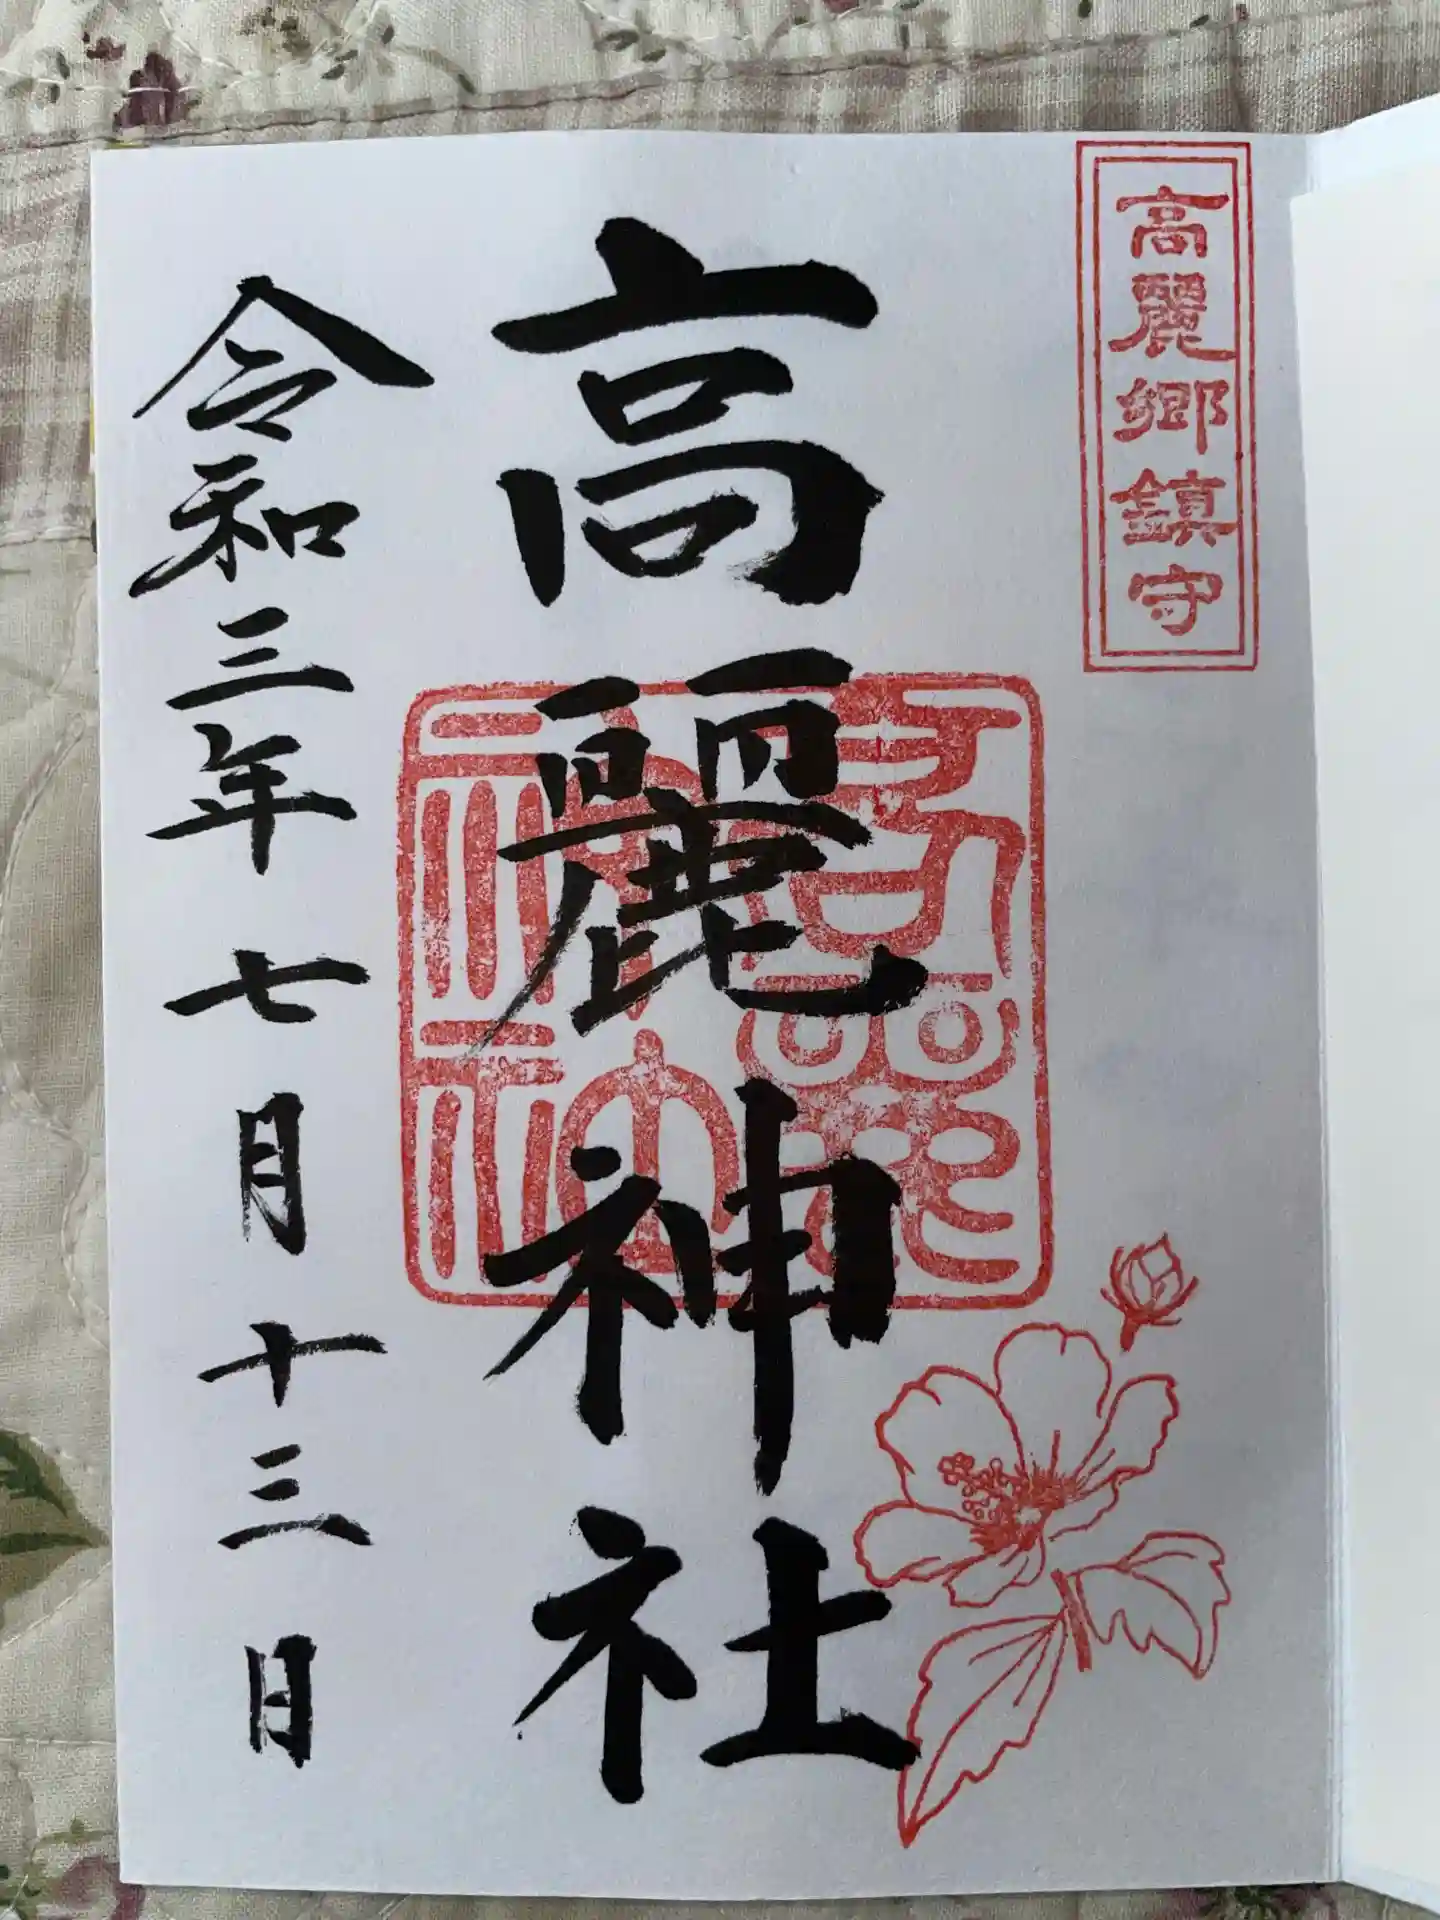 高麗郷鎮守
高麗神社
高麗神社
令和三年七月十三日